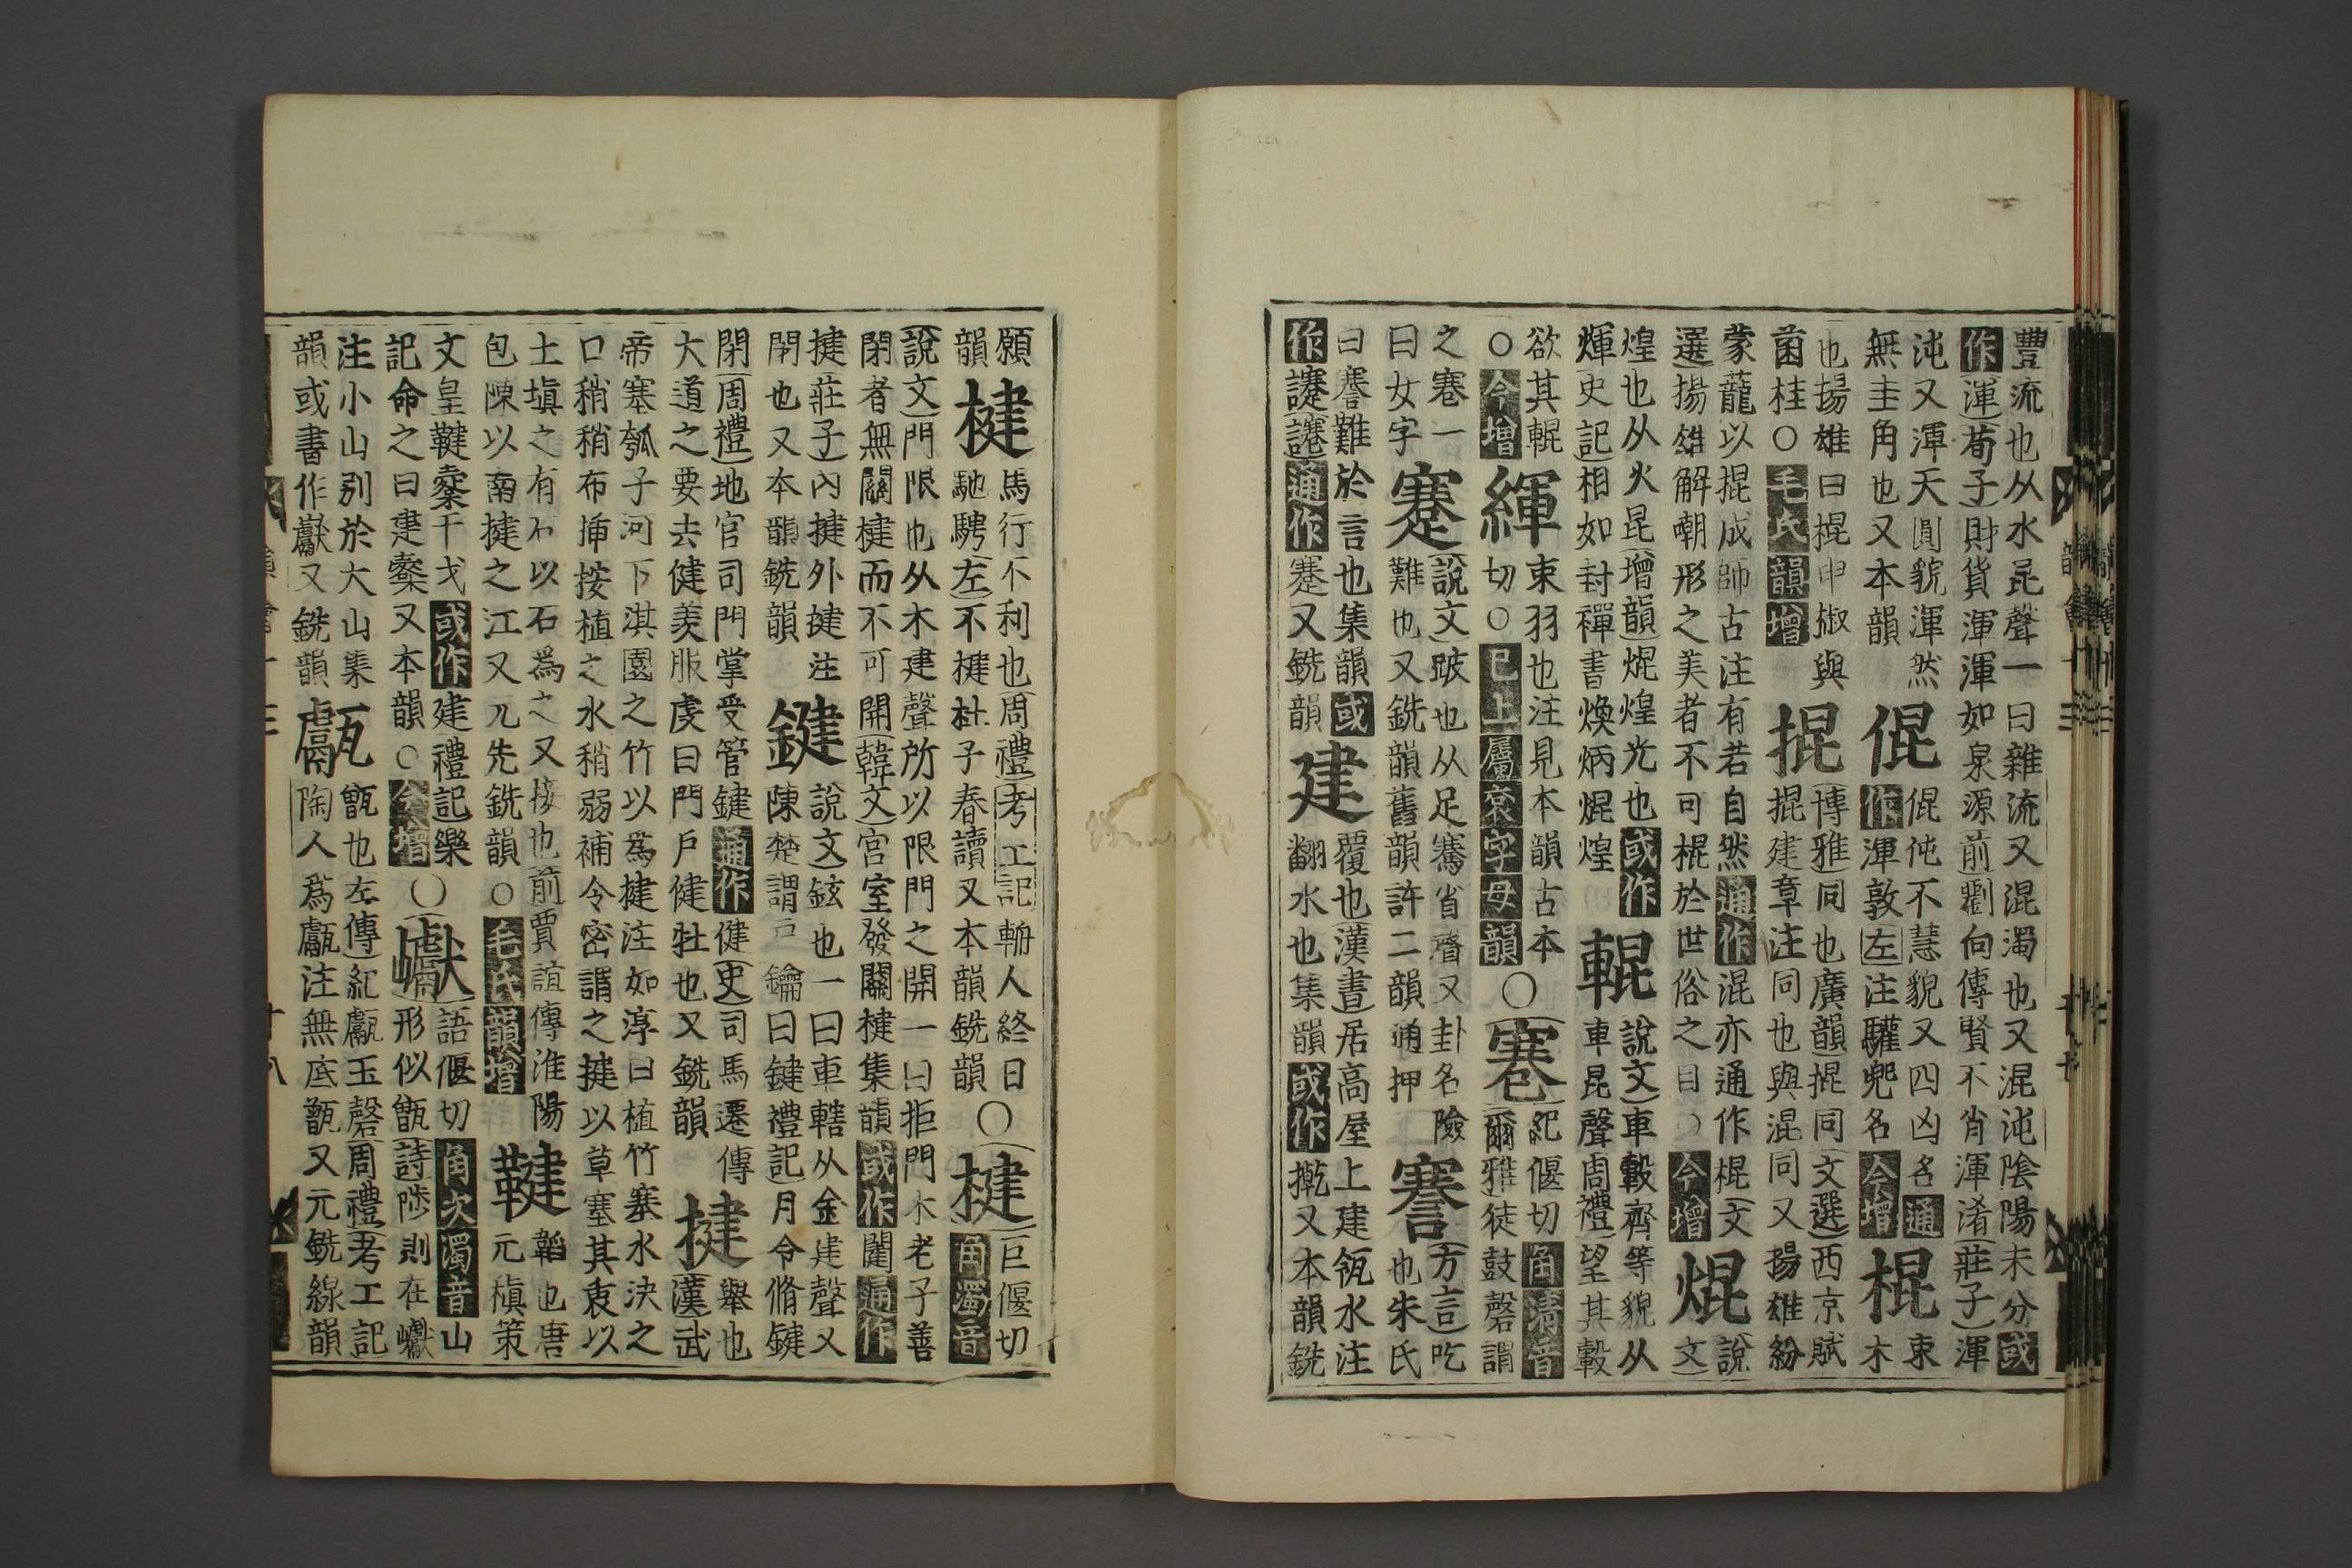 豐流也从水昆聲一曰雜流又混濁也又混沌陰陽未分或
作渾荀子財貨渾渾如泉源前劉向傳賢不肖渾淆莊子渾
沌又渾天圓貌渾然
無圭角也又本韻
倱
倱伅不慧貌又四凶名通
作渾敦左注驩兜名今增
棍
束
木
也揚雄曰棍申椒與
菌桂○毛氏韻增
掍
博雅同也廣韻掍同文選西京賦
掍建章注同也與混同又揚雄紛
蒙蘢以掍成師古注有若自然通作混亦通作棍文
選揚雄解嘲形之美者不可棍於世俗之目○今增
焜
說
文
煌也从火昆增韻焜煌光也或作
煇史記相如封禪書煥炳焜煌
輥
說文車轂齊等貌从
車昆聲周禮望其轂
欲其輥
○今增
緷
束羽也注見本韻古本
切○已上屬袞字母韻
○
寋
紀偃切角清音
爾雅徒鼓磬謂
之寋一
曰女字
蹇
說文跛也从足騫省聲又卦名險
難也又銑韻舊韻許二韻通押
謇
方言吃
也朱氏
曰謇難於言也集韻或
作讋通作蹇又銑韻
建
覆也漢書居高屋上建瓴水注
翻水也集韻或作揵又本韻銑
願
韻
楗
馬行不利也周禮考工記輈人終日
馳騁左不楗杜子春讀又本韻銑韻
○
楗
巨偃切
角濁音
說文門限也从木建聲所以限門之開一曰拒門木老子善
閉者無關楗而不可開韓文宮室發關楗集韻或作闥通作
揵莊子內揵外揵注
閈也又本韻銑韻
鍵
說文鉉也一曰車轄从金建聲又
陳楚謂戶鑰曰鍵禮記月令脩鍵
閉周禮地官司門掌受管鍵通作健史司馬遷傳
大道之要去健羨服虔曰門戶健牡也又銑韻
揵
舉也
漢武
帝塞瓠子河下淇園之竹以為揵注如淳曰植竹塞水決之
口稍稍布揷按植之水稍弱補令密謂之揵以草塞其裏以
土塡之有石以石爲之又接也前賈誼傳淮陽
包陳以南揵之江又元先銑韻○毛氏韻增
鞬
韜也唐
元稹策
文皇鞬櫜干戈或作建禮記樂
記命之曰建櫜又本韻○今增
○
巘
語偃切角次濁音山
形似甑詩陟則在巘
注小山別於大山集
韻或書作巚又銑韻
甗
甑也左傳紀甗玉磬周禮考工記
陶人爲甗注無底甑又元銑線韻